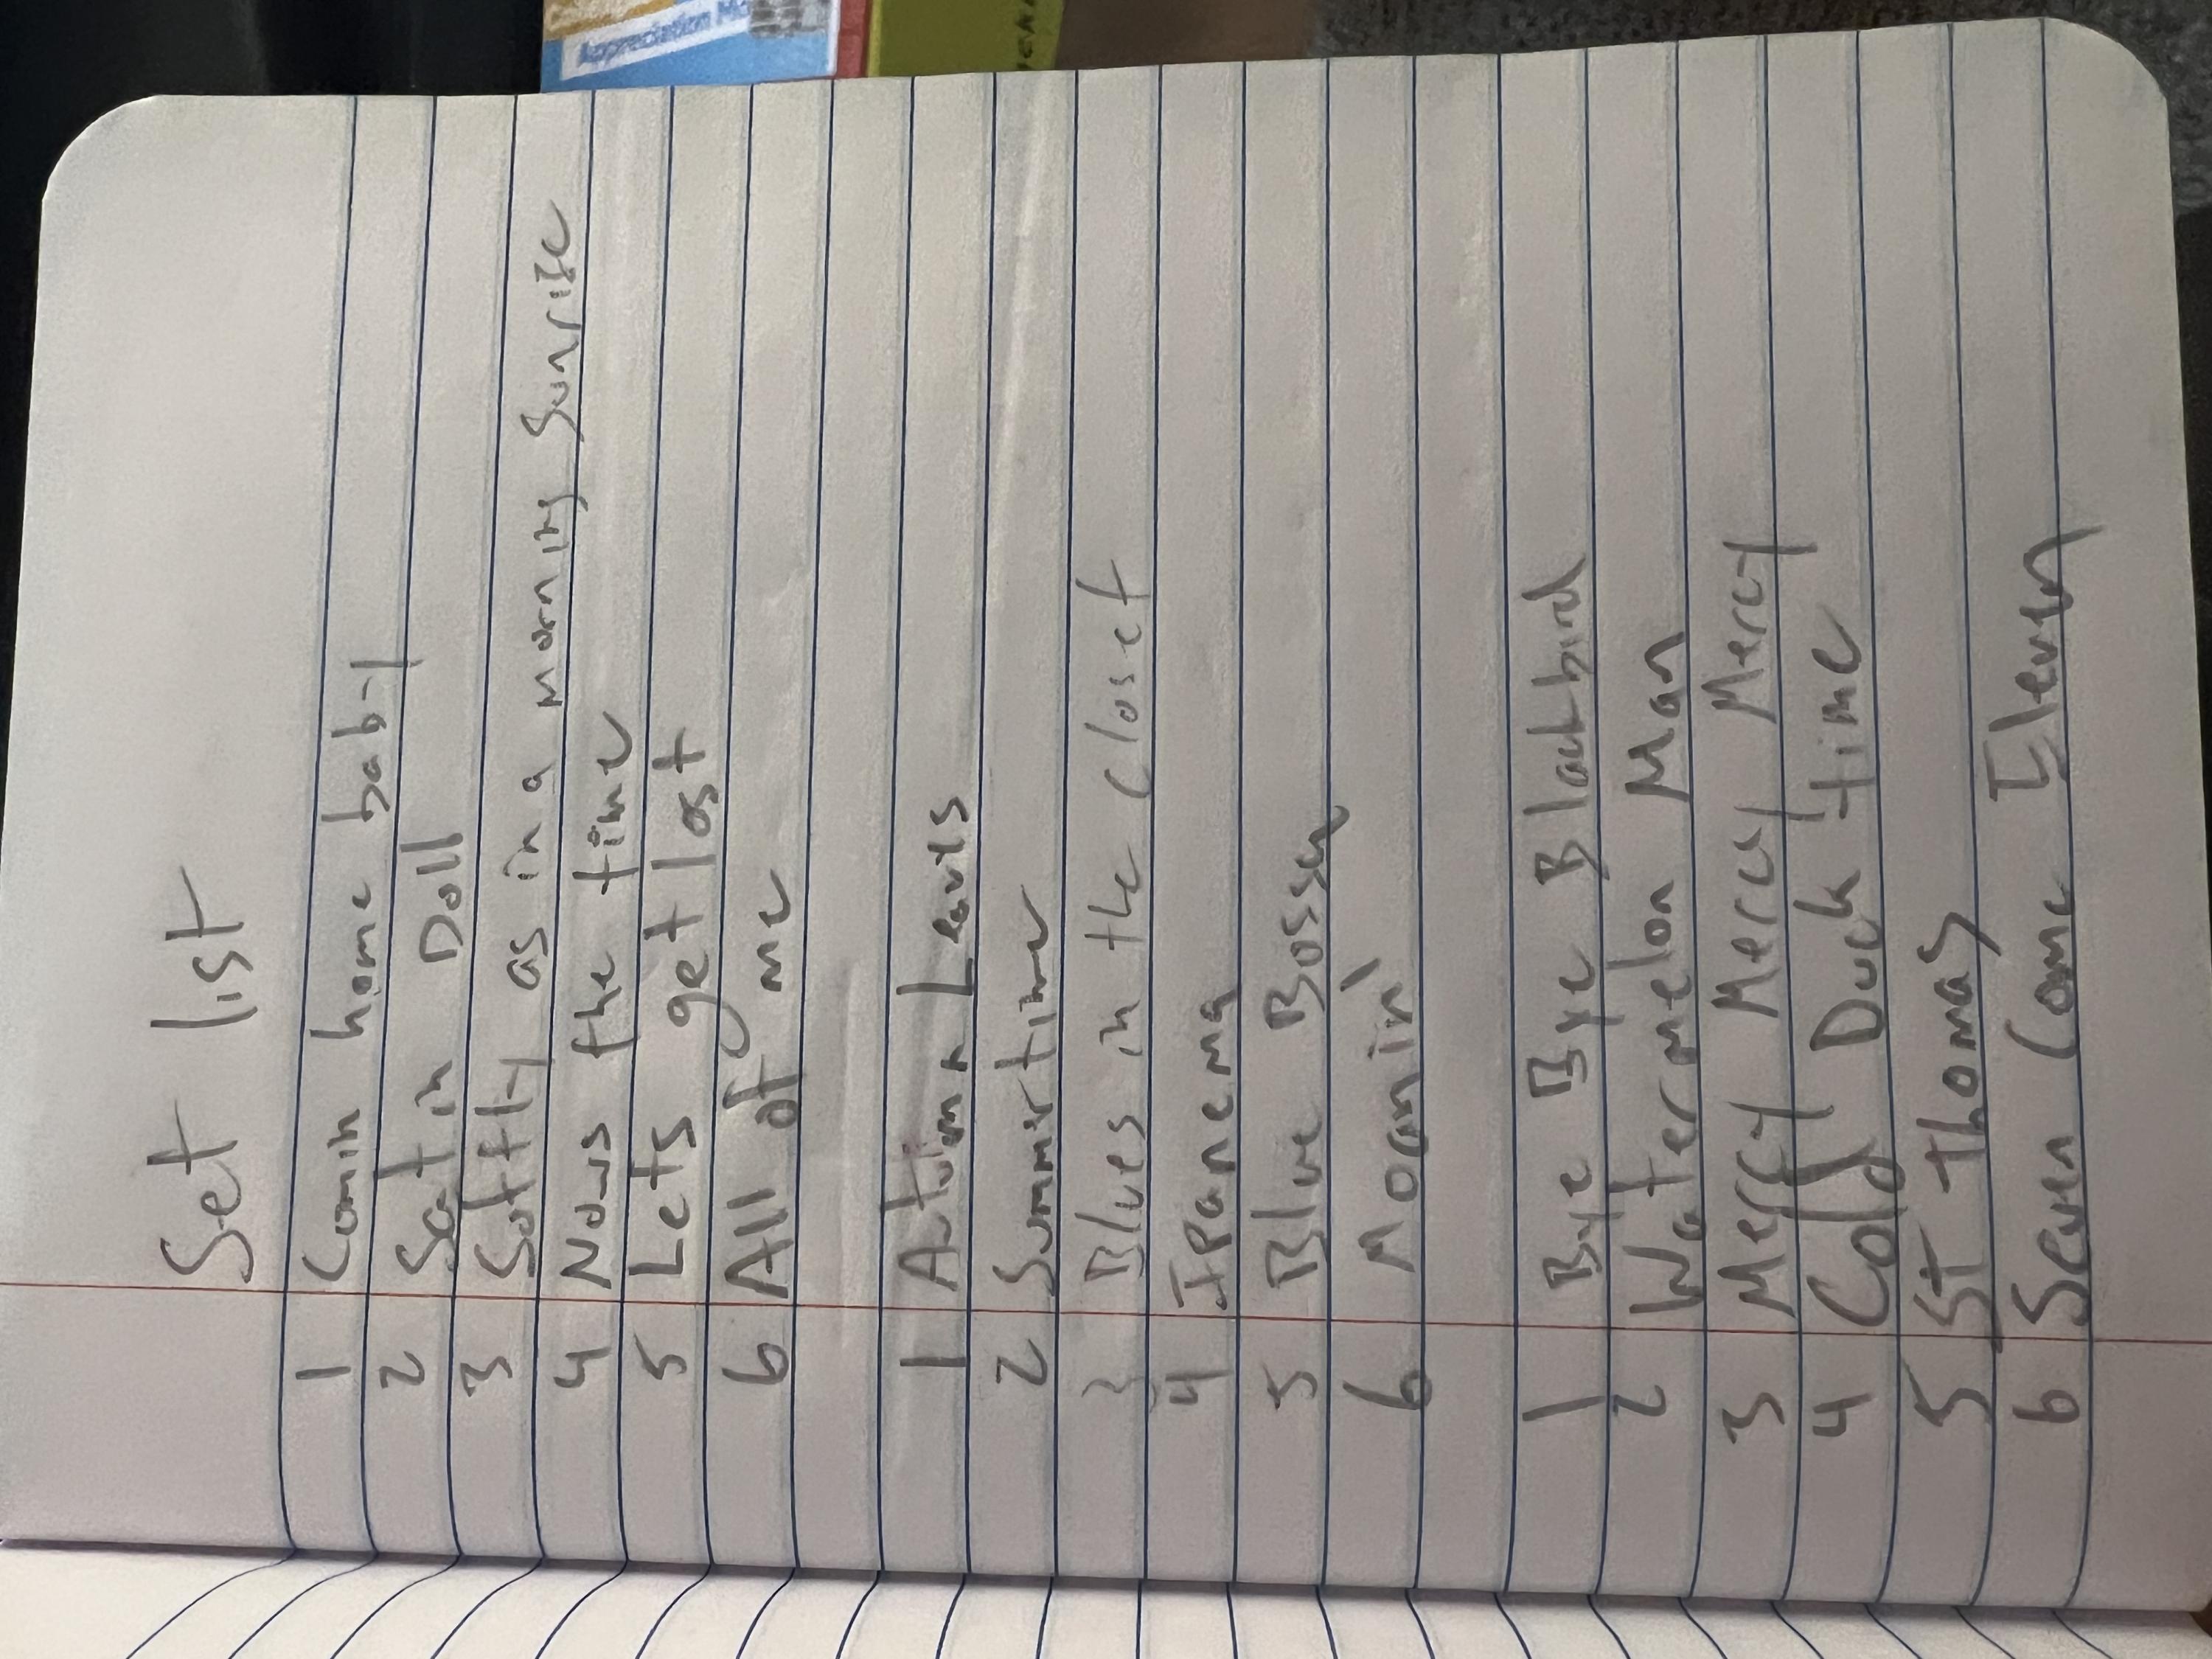 Appreciation
Set list
1 Comin home baby
2 Satin Doll
3 Softly as in a morning Sunrise
4 Nows the time
5 Lets get lost
6 All of me
1 Autumn Leaves
2 Summertime
3 Blues in the closet
4 Ipanema
5 Blue Bossa
6 Moanin'
1 Bye Bye Blackbird
2 Watermelon Man
3 Mercy Mercy Mercy
4 Cold Duck time
5 St thomas
6 Seven Come Eleven